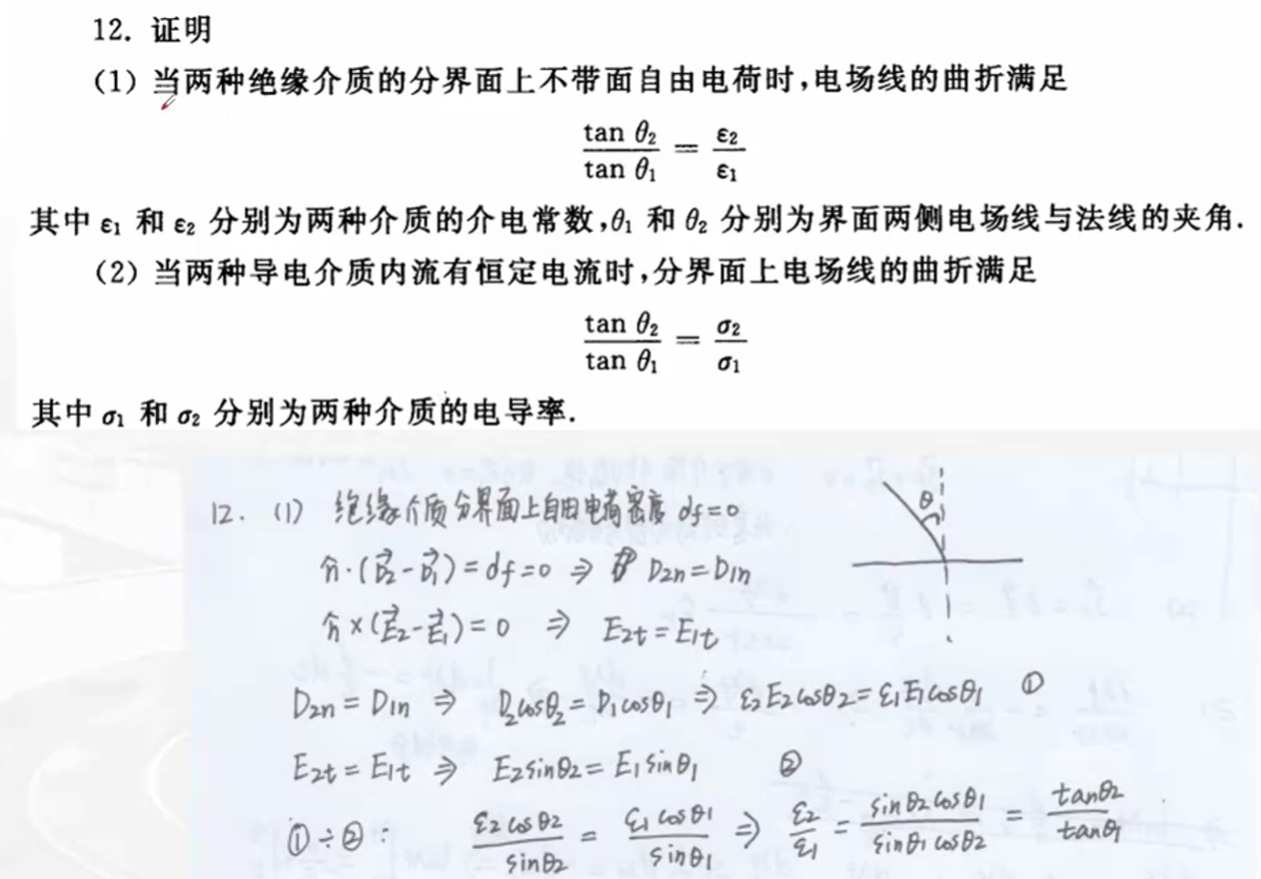 12. 证明
(1) 当两种绝缘介质的分界面上不带面自由电荷时,电场线的曲折满足
tan θ₂ / tan θ₁ = ε₂ / ε₁
其中 ε₁ 和 ε₂ 分别为两种介质的介电常数,θ₁ 和 θ₂ 分别为界面两侧电场线与法线的夹角.
(2) 当两种导电介质内流有恒定电流时,分界面上电场线的曲折满足
tan θ₂ / tan θ₁ = σ₂ / σ₁
其中 σ₁ 和 σ₂ 分别为两种介质的电导率.
12. (1) 绝缘介质分界面上自由电荷密度 df=0
θ
n̂·(D⃗₂-D⃗₁)=df=0 ⇒ D₂n=D₁n
n̂×(E⃗₂-E⃗₁)=0 ⇒ E₂t=E₁t
D₂n=D₁n ⇒ D₂cosθ₂=D₁cosθ₁ ⇒ ε₂E₂cosθ₂=ε₁E₁cosθ₁ ①
E₂t=E₁t ⇒ E₂sinθ₂=E₁sinθ₁ ②
①÷②: ε₂cosθ₂ / sinθ₂ = ε₁cosθ₁ / sinθ₁ ⇒ ε₂ / ε₁ = sinθ₂cosθ₁ / sinθ₁cosθ₂ = tanθ₂ / tanθ₁